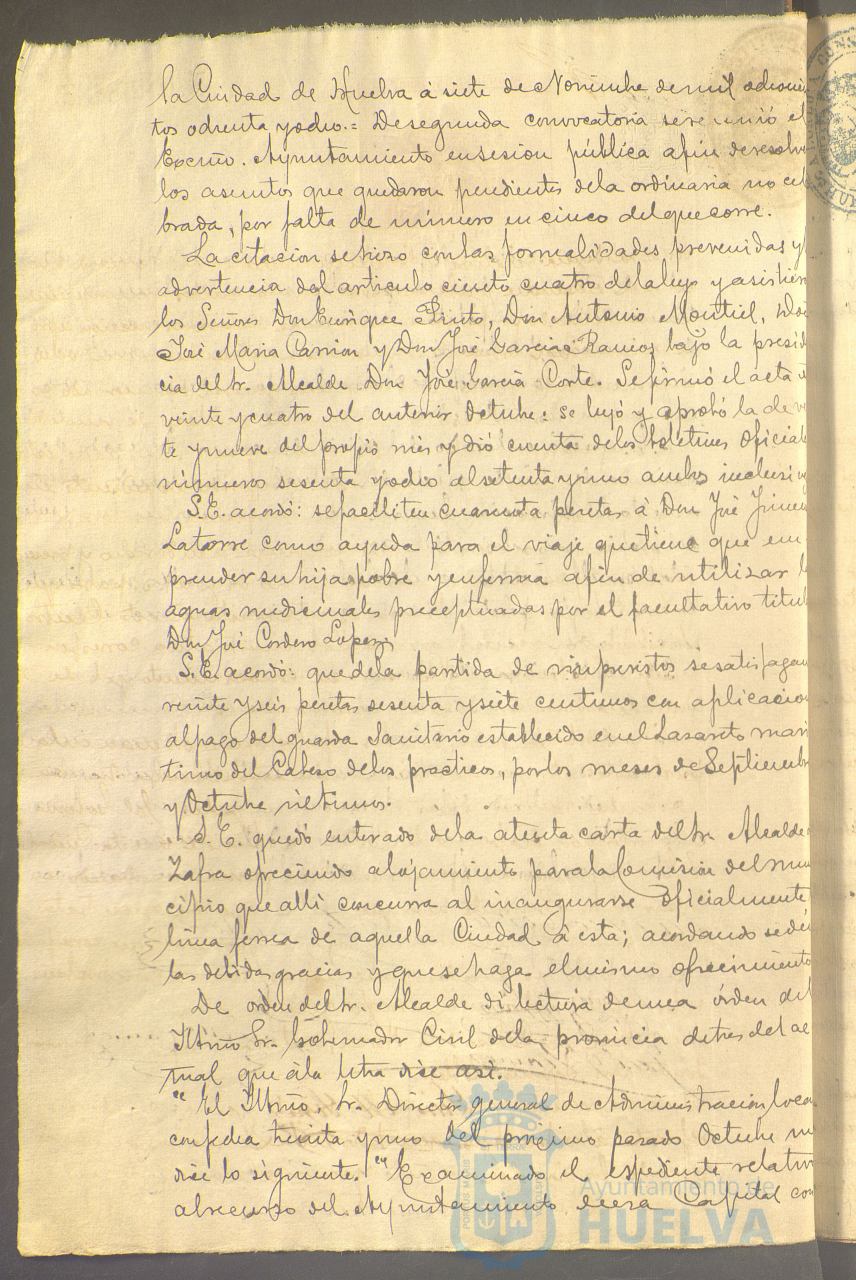 la Ciudad de Huelva á siete de Noviembre de mil ochocien
tos ochenta y ocho.= De segunda convocatoria se reunió el
Excmo. Ayuntamiento en sesion pública afin de resolve
los asuntos que quedaron pendientes de la ordinaria no cel
brada, por falta de número en cinco del que corre.
La citacion se hizo con las formalidades prevenidas y
advertencia del articulo ciento cuatro de la ley y asistien
los Señores Don Enrique Pinto, Don Antonio Montiel, Don
José Maria Carrion y Don José Garcia Ramos bajo la presid
cia del Sr. Alcalde Don José Garcia Corte. Se firmó el acta
veinte y cuatro del anterior Octubre: se leyó y aprobó la de ve
te y nueve del propio mes y dió cuenta de los boletines oficial
números sesenta y ocho al setenta y uno ambos inclusiv
S.E. acordó: se faciliten cuarenta pesetas á Don José Jimen
Latorre como ayuda para el viaje que tiene que em
prender su hija pobre y enferma afin de utilizar l
aguas medicinales preceptuadas por el facultativo titul
Don José Cordero Lopez.
S.E. acordó: que de la partida de imprevistos se satisfagan
veinte y seis pesetas sesenta y siete centimos con aplicacion
al pago del guarda Sanitario establecido en el Lazareto mari
timo del Cabezo de los practicos, por los meses de Septiembre
y Octubre últimos.
S.E. quedó enterado de la atenta carta del Sr. Alcalde
Zafra ofreciendo alojamiento para la Comision del mu
cipio que alli concurra al inaugurarse oficialmente
linea ferrea de aquella Ciudad á esta; acordando se dén
las debidas gracias y que se haga el mismo ofrecimiento
De orden del Sr. Alcalde di lectura de una órden del
Iltmo Sr. Gobernador Civil de la provincia de tres del ac
tual que á la letra dice asi.
"El Iltmo. Sr. Director general de Administracion local
con fecha treinta y uno del próximo pasado Octubre m
dice lo siguiente. "Examinado el espediente relativ
al recurso del Ayuntamiento de esa Capital con
Ayuntamiento de
HUELVA